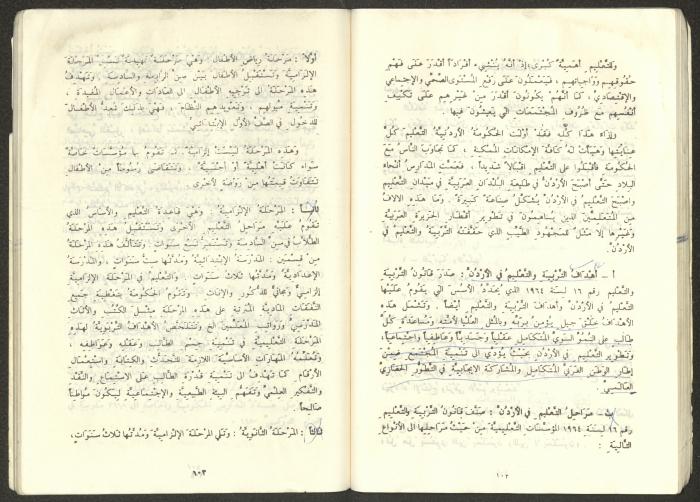 وللتعليم أهمية كبرى؛ إذ أنه ينشىء أفراداً أقدر على فهم
حقوقهم وواجباتهم، فيعملون على رفع المستوى الصحي والإجتماعي
والإقتصادي، كما أنهم يكونون أقدر من غيرهم على تكييف
أنفسهم مع ظروف المجتمعات التي يعيشون فيها.
وإزاء هذا كله فقد أولت الحكومة الأردنية التعليم كل
عنايتها وهيأت له كافة الإمكانات الممكنة، كما تجاوب الناس مع
الحكومة فأقبلوا على التعليم إقبالاً شديداً، فعمت المدارس أنحاء
البلاد حتى أصبح الأردن في طليعة البلدان العربية في ميدان التعليم
وأصبح التعليم في الأردن يشكل صناعة كبيرة. وما هذه الآلاف
من المتعلمين الذين يساهمون في تطوير أقطار الجزيرة العربية
وغيرها إلا مثل للمجهود الطيب الذي حققته التربية والتعليم في
الأردن.
أ - أهداف التربية والتعليم في الأردن: صدر قانون التربية
والتعليم رقم ١٦ لسنة ١٩٦٤ الذي يحدد الأسس التي يقوم عليها
التعليم في الأردن وأهداف التربية والتعليم أيضاً. وتشمل هذه
الأهداف خلق جيل يؤمن بربه وبالمثل العليا لأمته ومساعدة كل
طالب على النمو السوي المتكامل عقلياً وجسدياً وعاطفياً واجتماعياً،
وتطوير التعليم في الأردن بحيث يؤدي الى تنمية المجتمع ضمن
إطار الوطن العربي المتكامل والمشاركة الايجابية في التطور الحضاري
العالمي.
ب - مراحل التعليم في الأردن: صنف قانون التربية والتعليم
رقم ١٦ لسنة ١٩٦٤ المؤسسات التعليمية من حيث مراحلها الى الأنواع
التالية:
١٠٢
أولاً: مرحلة رياض الأطفال: وهي مرحلة تهيئة ليست المرحلة
الإلزامية وتستقبل الأطفال بين سن الرابعة والسادسة. وتهدف
هذه المرحلة الى توجيه الأطفال الى العادات والأعمال المفيدة،
وتنمية ميولهم، وتعويدهم النظام، فهي بذلك تعد الأطفال
للدخول في الصف الأول الإبتدائي.
وهذه المرحلة ليست إلزامية، بل تقوم بها مؤسسات خاصة
سواء كانت أهلية أو أجنبية، وتتقاضى رسوماً من الأطفال
تتفاوت قيمتها من روضة لأخرى.
ثانياً: المرحلة الإلزامية: وهي قاعدة التعليم والأساس الذي
تقوم عليه مراحل التعليم الأخرى وتستقبل هذه المرحلة
الطلاب من سن السادسة وتستمر تسع سنوات. وتتألف هذه المرحلة
من قسمين: المدرسة الإبتدائية ومدتها ست سنوات، والمدرسة
الإعدادية ومدتها ثلاث سنوات. والتعليم في المرحلة الإلزامية
إلزامي ومجاني للذكور والإناث. وتقوم الحكومة بتغطية جميع
النفقات المادية المترتبة على هذه المرحلة مثل الكتب والأثاث
المدرسي ورواتب المعلمين الخ وتتلخص الأهداف التربوية لهذه
المرحلة التعليمية في تنمية جسم الطالب وعقله وعواطفه،
وتعليمه المهارات الأساسية اللازمة للتحدث والكتابة واستعمال
الأرقام كما تهدف الى تنمية قدرة الطالب على الاستماع والنقد
والتفكير العلمي وتفهم البيئة الطبيعية والإجتماعية ليكون مواطناً
صالحاً.
ثالثاً: المرحلة الثانوية: وتلي المرحلة الإلزامية ومدتها ثلاث سنوات،
١٠٣